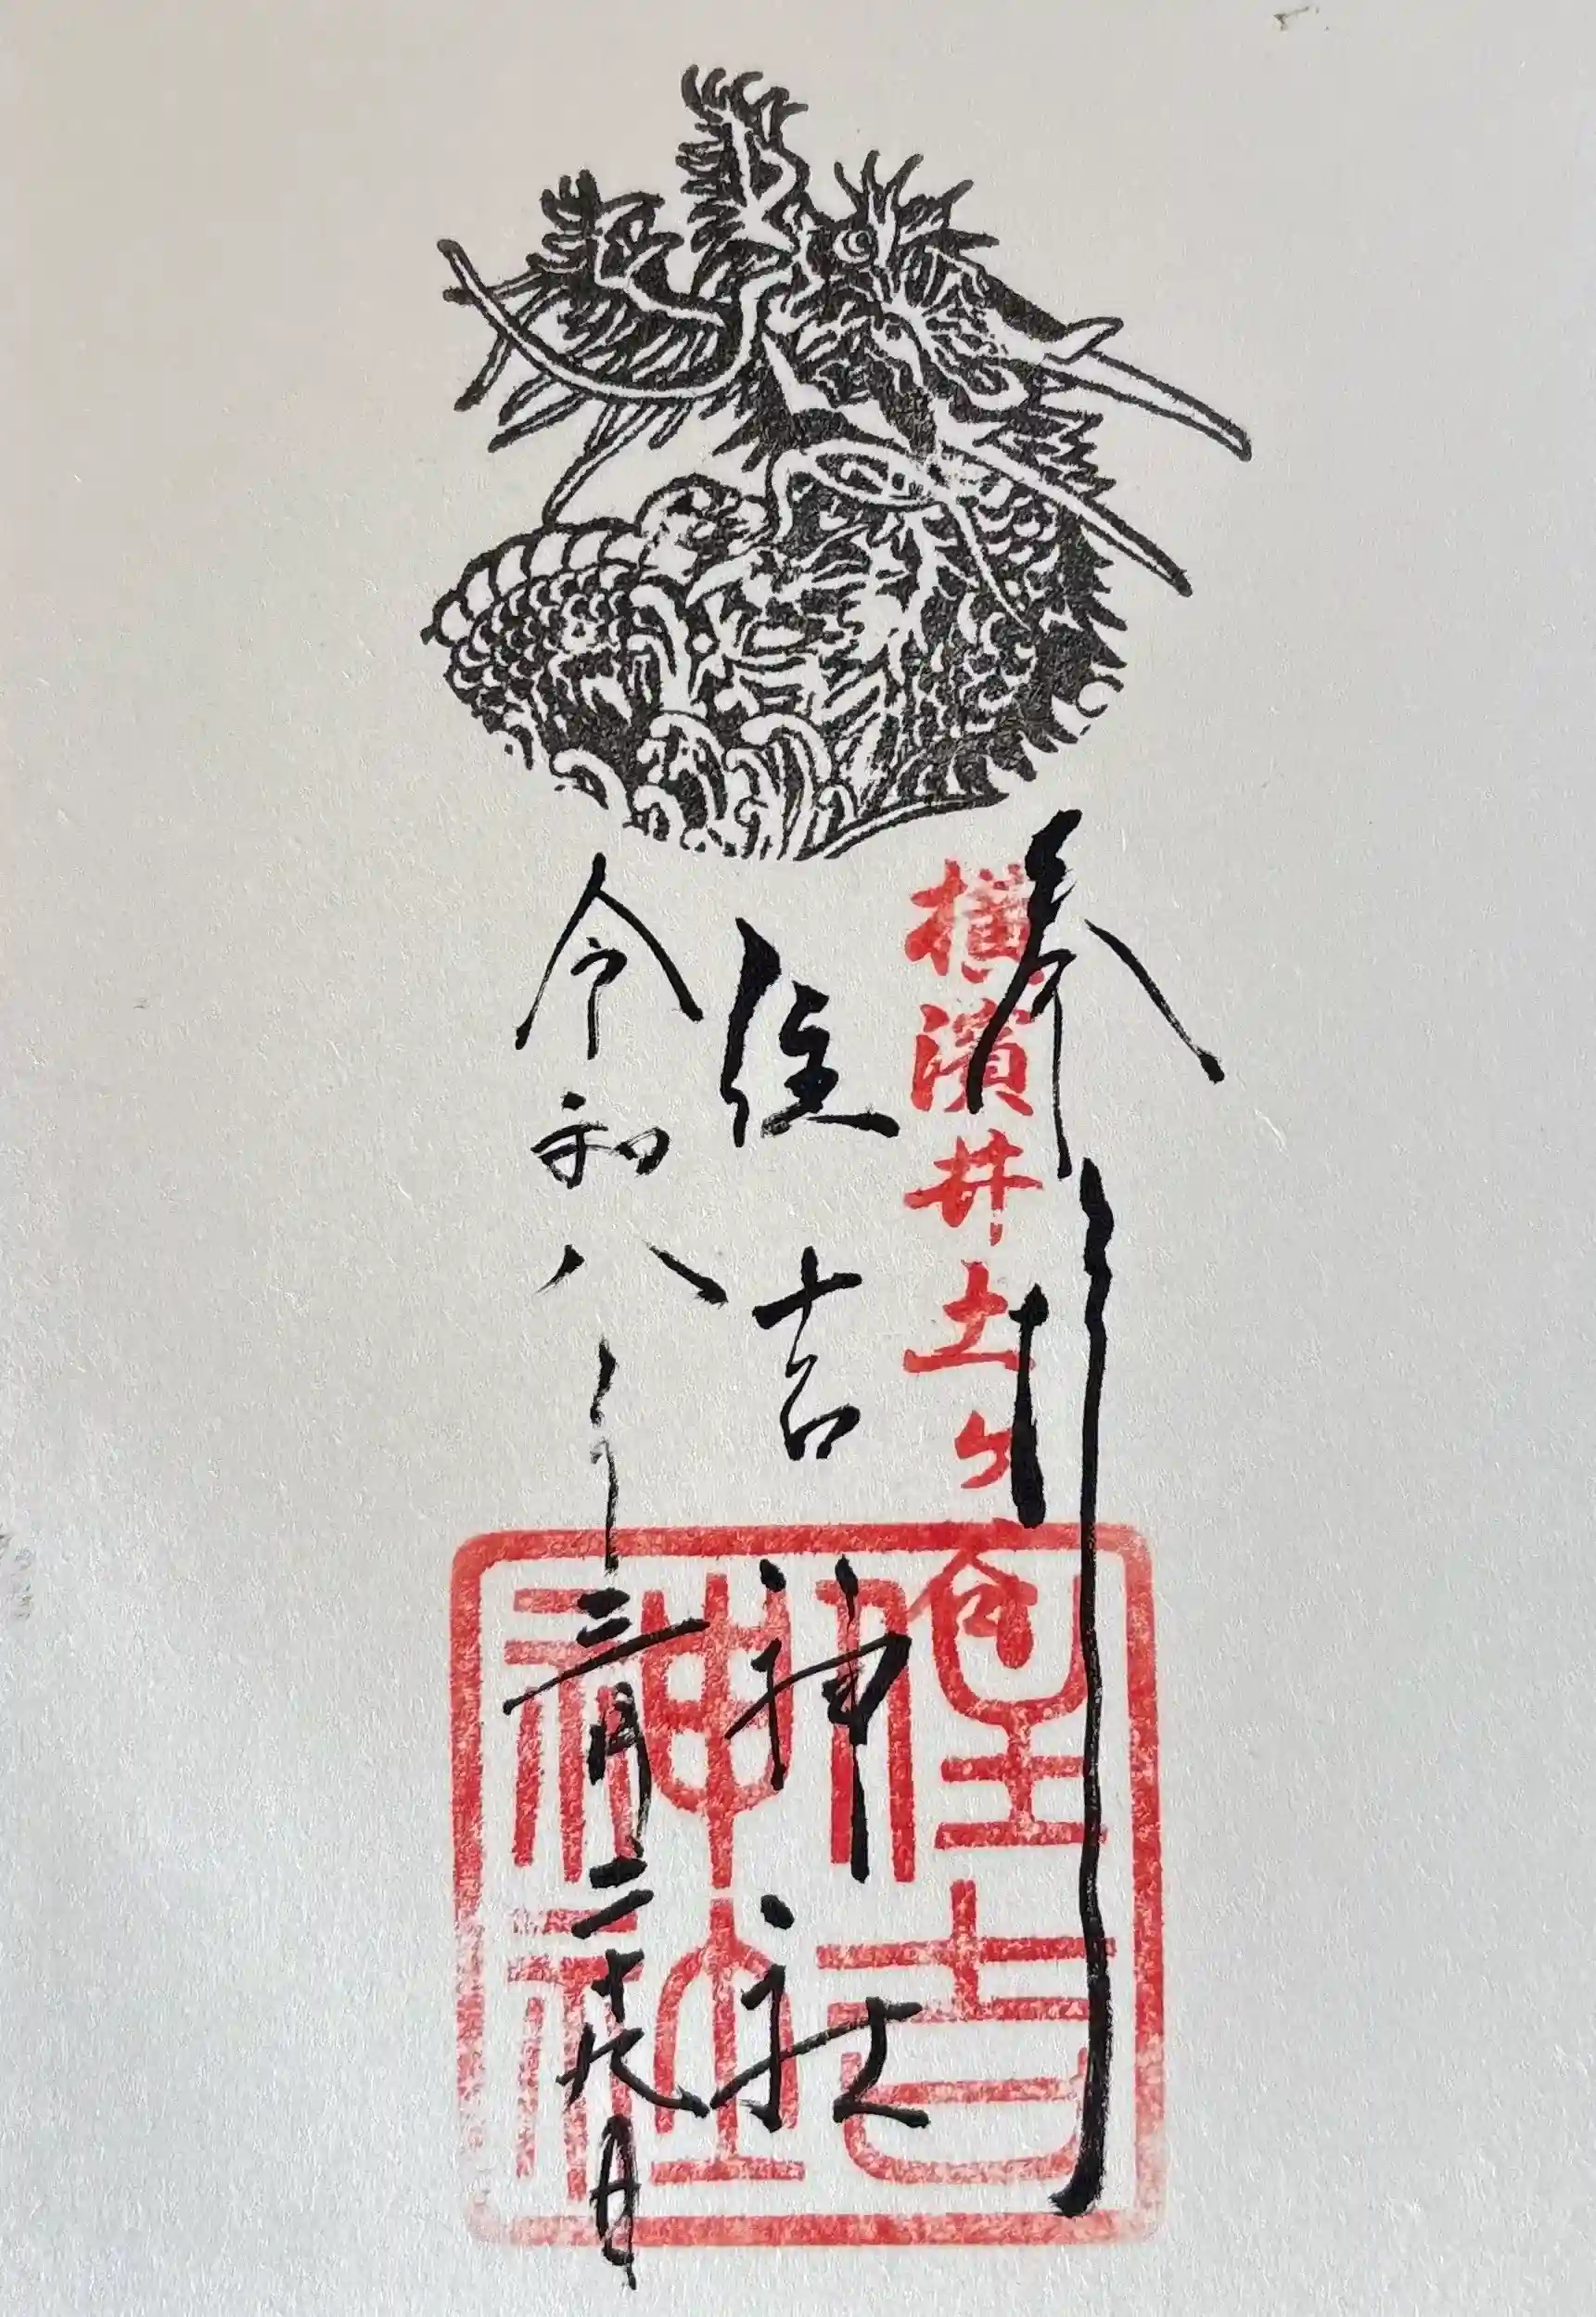 奉拝
横濱井土ヶ谷
住吉神社
令和八年三月二十九日
住吉神社